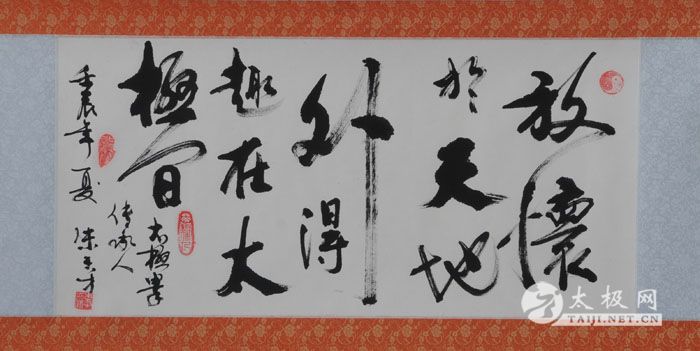 放懷
於天地
外得
趣在太
極間
太極拳
傳承人
壬辰年夏 朱天才
太极网
TAIJI.NET.CN